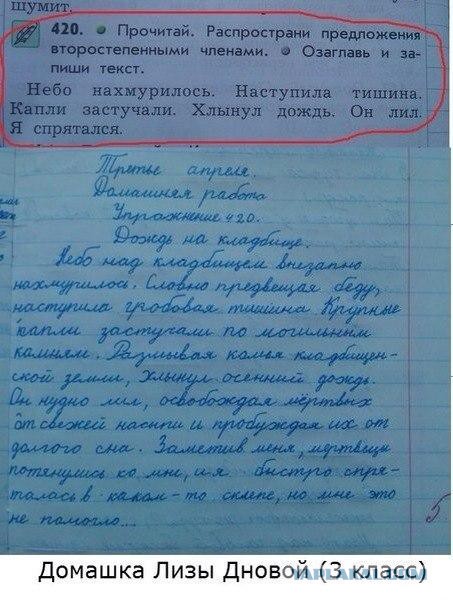 шумит.
420. • Прочитай. Распространи предложения
второстепенными членами. • Озаглавь и за-
пиши текст.
Небо нахмурилось. Наступила тишина.
Капли застучали. Хлынул дождь. Он лил.
Я спрятался.
Третье апреля.
Домашняя работа
Упражнение 420.
Дождь на кладбище.
Небо над кладбищем внезапно
нахмурилось. Словно предвещая беду,
наступила гробовая тишина Крупные
капли застучали по могильным
камням. Размывая комья кладбищен-
ской земли, хлынул осенний дождь.
Он нудно лил, освобождая мёртвых
от свежей насыпи и пробуждая их от
долгого сна. Заметив меня, мертвецы
потянулись ко мне, и я быстро спря-
талась в каком-то склепе, но мне это
не помогло...
5
Домашка Лизы Дновой (3 класс)
YAPLAKAL.COM